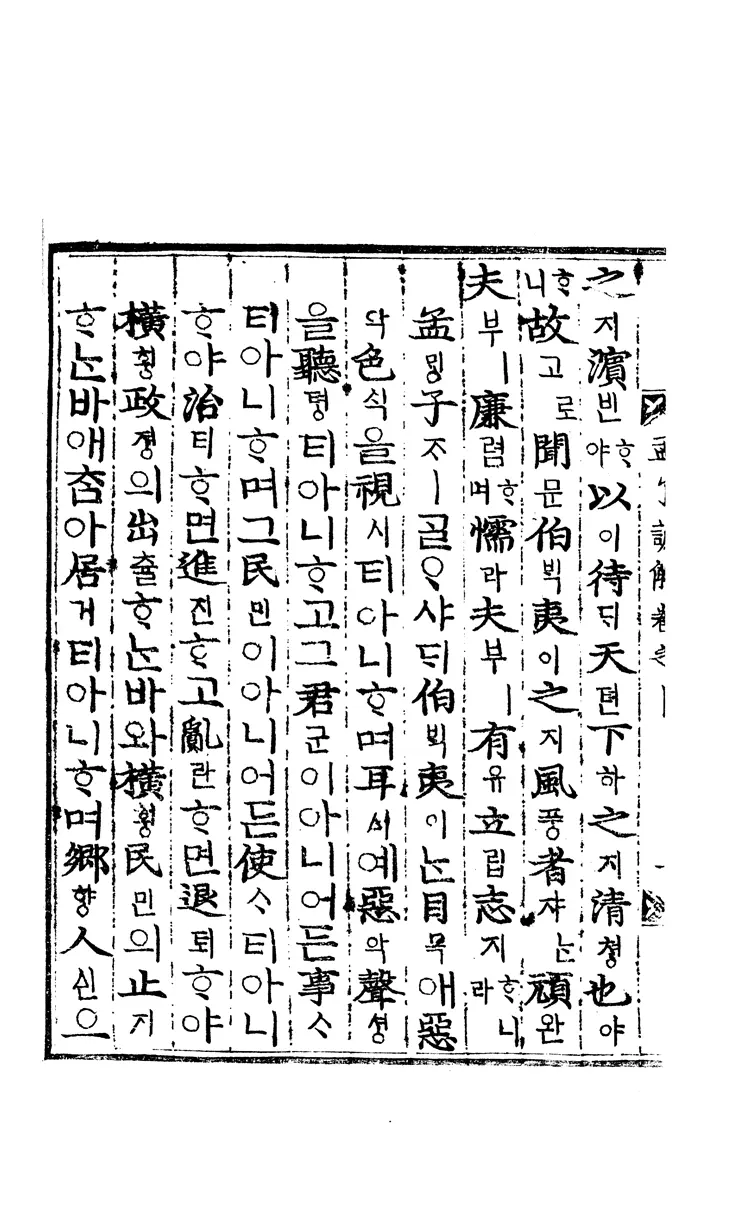 之지濱빈ᄒᆞ야以이待ᄃᆡ天텬下하之지清쳥也야
ᄒᆞ니故고로聞문伯ᄇᆡᆨ夷이之지風풍者쟈ᄂᆞᆫ頑완
夫부ㅣ廉렴ᄒᆞ며懦라夫부ㅣ有유立립志지ᄒᆞ니라
孟ᄆᆡᆼ子ᄌᆞㅣᄀᆞᆯᄋᆞ샤ᄃᆡ伯ᄇᆡᆨ夷이ᄂᆞᆫ目목애惡
악色ᄉᆡᆨ을視시티아니ᄒᆞ며耳ᅀᅵ예惡악聲셩
을聽텽티아니ᄒᆞ고그君군이아니어든事ᄉᆞ
티아니ᄒᆞ며그民민이아니어든使ᄉᆞ티아니
ᄒᆞ야治티ᄒᆞ면進진ᄒᆞ고亂란ᄒᆞ면退퇴ᄒᆞ야
橫ᄒᆡᆼ政졍의出츌ᄒᆞᄂᆞᆫ바와橫ᄒᆡᆼ民민의止지
ᄒᆞᄂᆞᆫ바애ᄎᆞᆷ아居거티아니ᄒᆞ며鄉향人ᅀᅵᆫ으